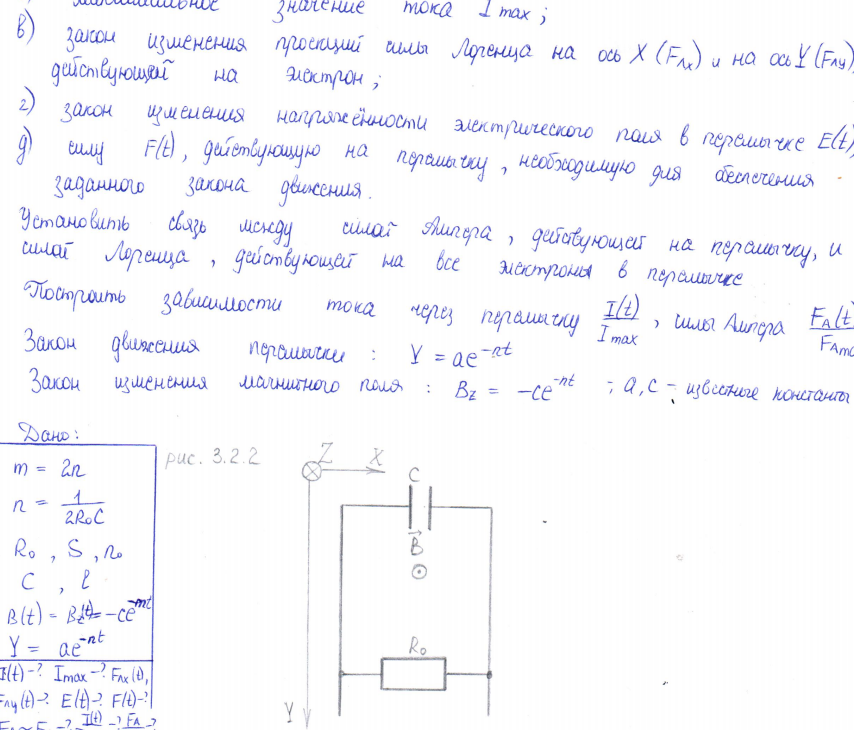 максимальное значение тока I max ;
в) закон изменения проекций силы Лоренца на ось X (Fлx) и на ось Y (Fлy),
действующей на электрон ;
г) закон изменения напряжённости электрического поля в перемычке E(t),
д) силу F(t), действующую на перемычку, необходимую для обеспечения
заданного закона движения.
Установить связь между силой Ампера, действующей на перемычку, и
силой Лоренца, действующей на все электроны в перемычке
Построить зависимости тока через перемычку I(t)/Imax, силы Ампера FA(t)/FAmax
Закон движения перемычки : Y = ae^-nt
Закон изменения магнитного поля : Bz = -ce^-nt ; a, c - известные константы
Дано:
m = 2n
n = 1/2R₀C
R₀, S, n₀
C, l
B(t) = Bz(t) = -ce^-mt
Y = ae^-nt
I(t)-? Imax-? Fлx(t),
Fлy(t)-? E(t)-? F(t)-?
I(t) -? FA -?
рис. 3.2.2
Z X
C
B
R₀
Y